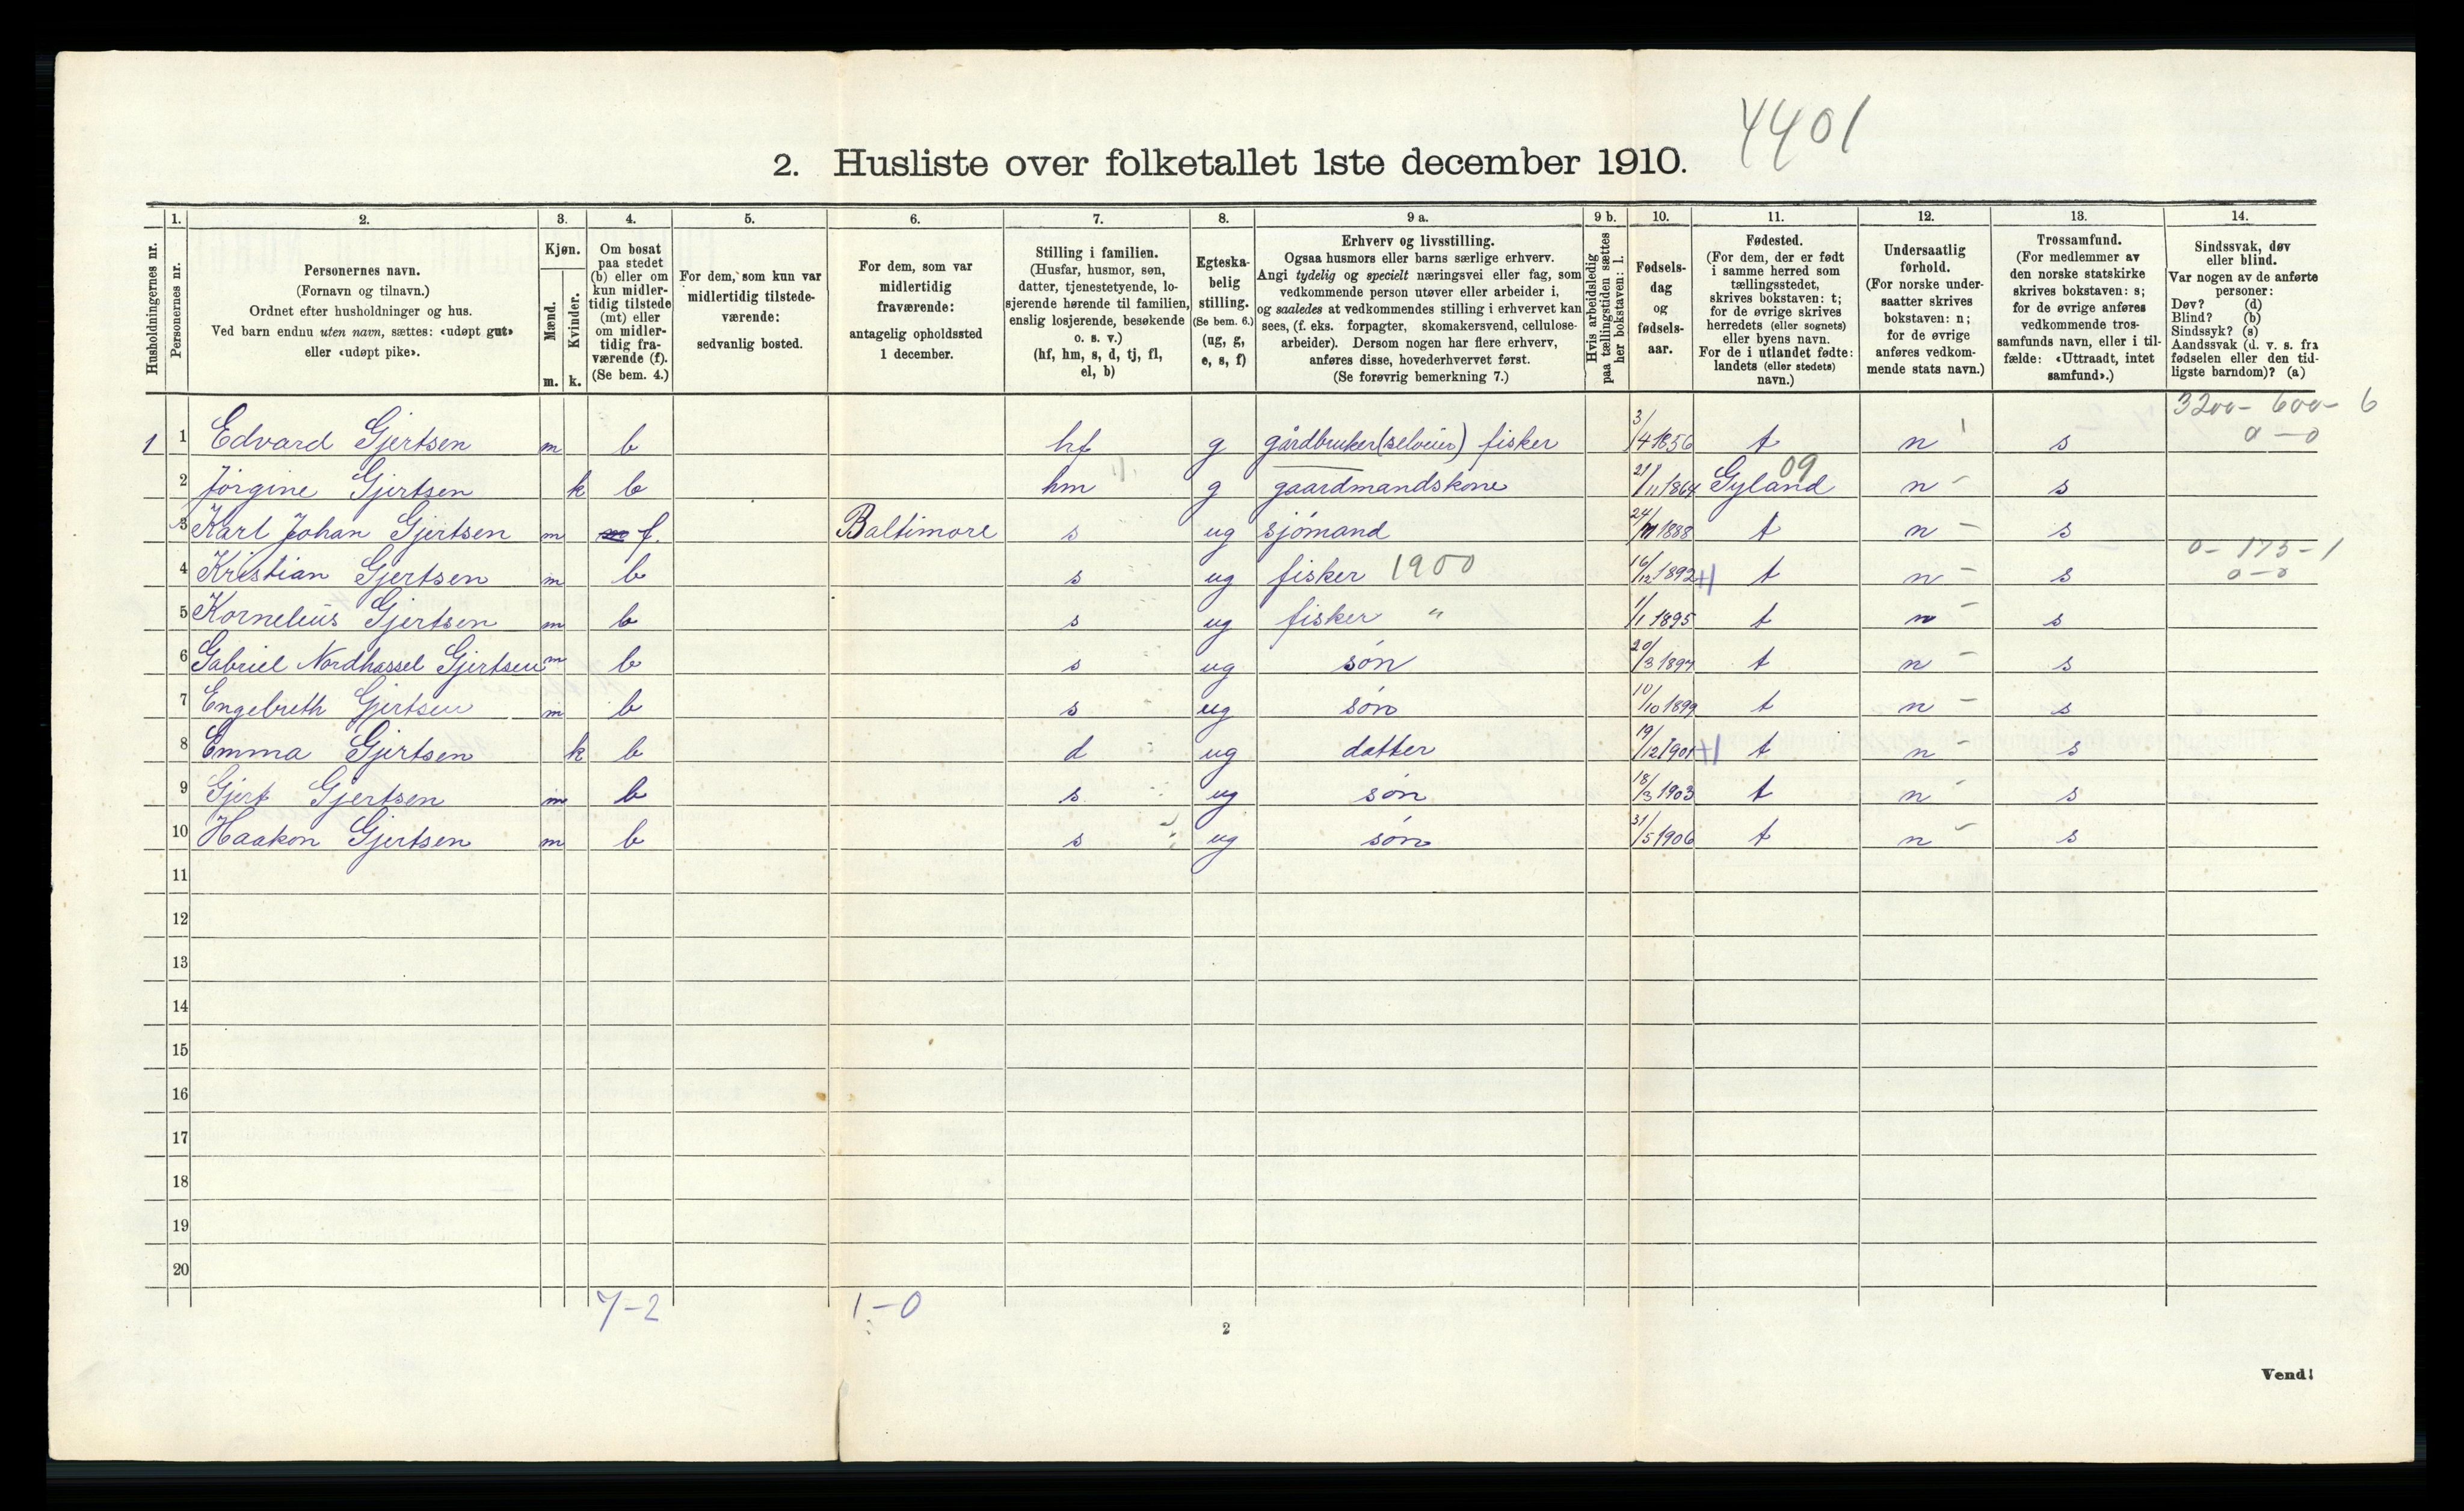 4401
2. Husliste over folketallet 1ste december 1910.
Husholdningernes nr.
1.
Personernes nr.
2.
Personernes navn.
(Fornavn og tilnavn.)
Ordnet efter husholdninger og hus.
Ved barn endnu uten navn, sættes: «udøpt gut»
eller «udøpt pike».
3.
Kjøn.
Mænd.
Kvinder.
m. k.
4.
Om bosat
paa stedet
(b) eller om
kun midler-
tidig tilstede
(mt) eller
om midler-
tidig fra-
værende (f).
(Se bem. 4.)
5.
For dem, som kun var
midlertidig tilstede-
værende:
sedvanlig bosted.
6.
For dem, som var
midlertidig
fraværende:
antagelig opholdssted
1 december.
7.
Stilling i familien.
(Husfar, husmor, søn,
datter, tjenestetyende, lo-
sjerende hørende til familien,
enslig losjerende, besøkende
o. s. v.)
(hf, hm, s, d, tj, fl,
el, b)
8.
Egteska-
belig
stilling.
(Se bem. 6.)
(ug, g,
e, s, f)
9 a.
Erhverv og livsstilling.
Ogsaa husmors eller barns særlige erhverv.
Angi tydelig og specielt næringsvei eller fag, som
vedkommende person utøver eller arbeider i,
og saaledes at vedkommendes stilling i erhvervet kan
sees, (f. eks. forpagter, skomakersvend, cellulose-
arbeider). Dersom nogen har flere erhverv,
anføres disse, hovederhvervet først.
(Se forøvrig bemerkning 7.)
9 b.
Hvis arbeidsledig
paa tællingstiden sættes
her bokstaven: l.
10.
Fødsels-
dag
og
fødsels-
aar.
11.
Fødested.
(For dem, der er født
i samme herred som
tællingsstedet,
skrives bokstaven: t;
for de øvrige skrives
herredets (eller sognets)
eller byens navn.
For de i utlandet fødte:
landets (eller stedets)
navn.)
12.
Undersaatlig
forhold.
(For norske under-
saatter skrives
bokstaven: n;
for de øvrige
anføres vedkom-
mende stats navn.)
13.
Trossamfund.
(For medlemmer av
den norske statskirke
skrives bokstaven: s;
for de øvrige anføres
vedkommende tros-
samfunds navn, eller i til-
fælde: «Uttraadt, intet
samfund».)
14.
Sindssvak, døv
eller blind.
Var nogen av de anførte
personer:
Døv? (d)
Blind? (b)
Sindssyk? (s)
Aandssvak (d. v. s. fra
fødselen eller den tid-
ligste barndom)? (a)
3200 - 600 - 6
1 1 Edvard Gjertsen m b hf g gårdbruker (selveier) fisker 3/4 1856 t n s 0 - 0
2 Jörgine Gjertsen k b hm g gaardmandskone 21/11 1864 Gyland 09 n s
3 Karl Johan Gjertsen m f. Baltimore s ug sjömand 24/11 1888 t n s
0 - 175 - 1
4 Kristian Gjertsen m b s ug fisker 1900 16/12 1892 +1 t n s 0 - 0
5 Kornelius Gjertsen m b s ug fisker " 1/1 1895 t n s
6 Gabriel Nordhassel Gjertsen m b s ug sön 20/3 1897 t n s
7 Engebreth Gjertsen m b s ug sön 10/10 1899 t n s
8 Emma Gjertsen k b d ug datter 19/12 1901 +1 t n s
9 Gjert Gjertsen m b s ug sön 18/3 1903 t n s
10 Haakon Gjertsen m b s ug sön 31/5 1906 t n s
11
12
13
14
15
16
17
18
19
20
7 - 2 1 - 0
2
Vend!